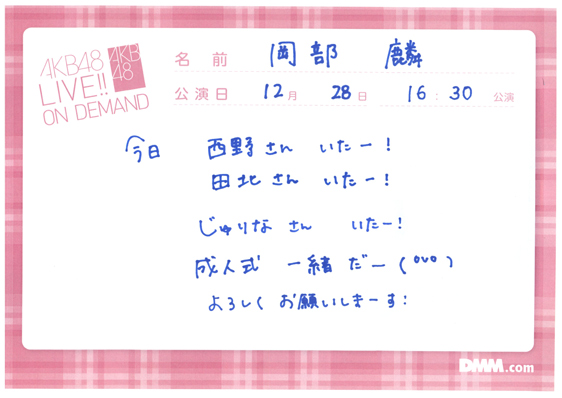 AKB48
LIVE!!
ON DEMAND
AKB
48
名前 岡部 麟
公演日 12月 28日 16:30 公演
今日 西野さん いたー!
田北さん いたー!
じゅりなさん いたー!
成人式 一緒だー(°ᵕᵕ°)
よろしくお願いしまーす!
DMM.com